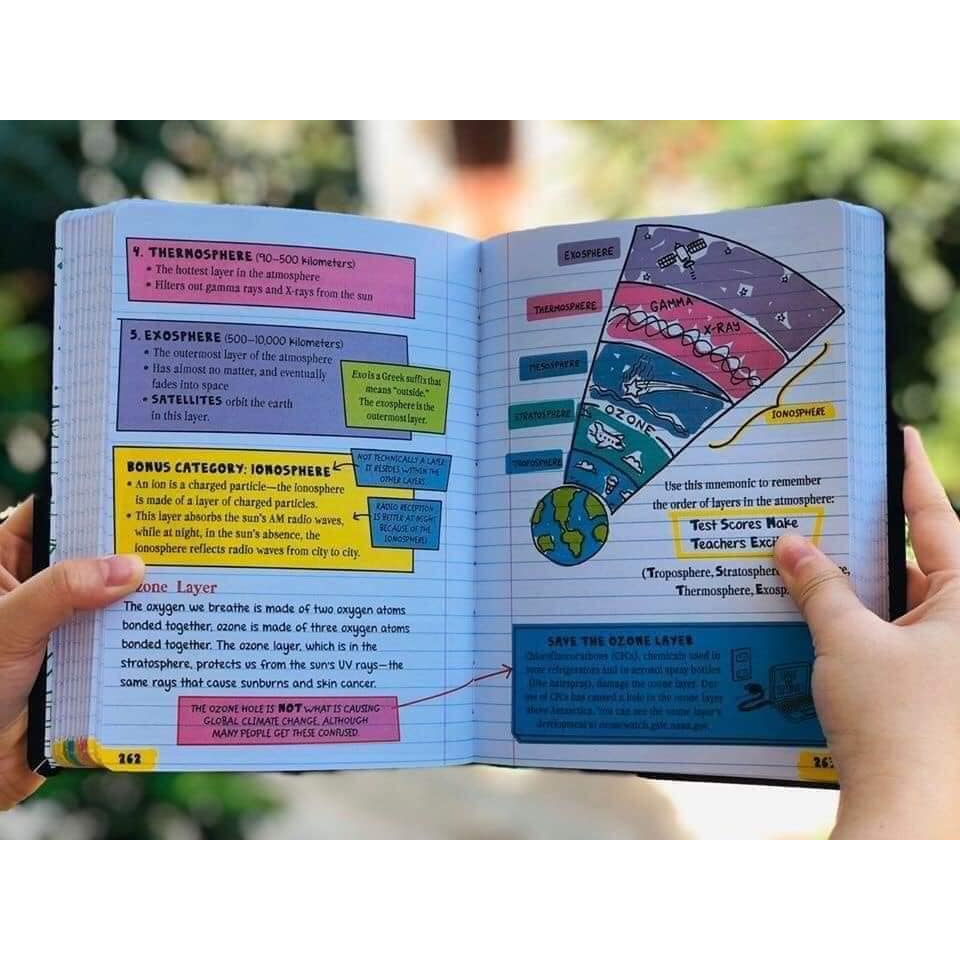 4. THERMOSPHERE (90–500 kilometers)
• The hottest layer in the atmosphere
• Filters out gamma rays and X-rays from the sun
5. EXOSPHERE (500–10,000 kilometers)
• The outermost layer of the atmosphere
• Has almost no matter, and eventually
fades into space
• SATELLITES orbit the earth
in this layer.
Exo is a Greek suffix that
means "outside."
The exosphere is the
outermost layer.
BONUS CATEGORY: IONOSPHERE
NOT TECHNICALLY A LAYER
IT RESIDES WITHIN THE
OTHER LAYERS
• An ion is a charged particle—the ionosphere
is made of a layer of charged particles.
• This layer absorbs the sun's AM radio waves,
while at night, in the sun's absence, the
ionosphere reflects radio waves from city to city.
RADIO RECEPTION
IS BETTER AT NIGHT
BECAUSE OF THE
IONOSPHERE!
zone Layer
The oxygen we breathe is made of two oxygen atoms
bonded together, ozone is made of three oxygen atoms
bonded together. The ozone layer, which is in the
stratosphere, protects us from the sun's UV rays—the
same rays that cause sunburns and skin cancer.
THE OZONE HOLE IS NOT WHAT IS CAUSING
GLOBAL CLIMATE CHANGE, ALTHOUGH
MANY PEOPLE GET THESE CONFUSED.
262
EXOSPHERE
THERMOSPHERE
GAMMA
X-RAY
MESOSPHERE
STRATOSPHERE
OZONE
IONOSPHERE
TROPOSPHERE
Use this mnemonic to remember
the order of layers in the atmosphere:
Test Scores Make
Teachers Exci
(Troposphere, Stratosphere, re,
Thermosphere, Exosp
SAVE THE OZONE LAYER
Chlorofluorocarbons (CFCs), chemicals used in
some refrigerators and in aerosol spray bottles
(like hairspray), damage the ozone layer. Our
use of CFCs has caused a hole in the ozone layer
above Antarctica. You can see the ozone layer's
development at ozonewatch.gsfc.nasa.gov.
263